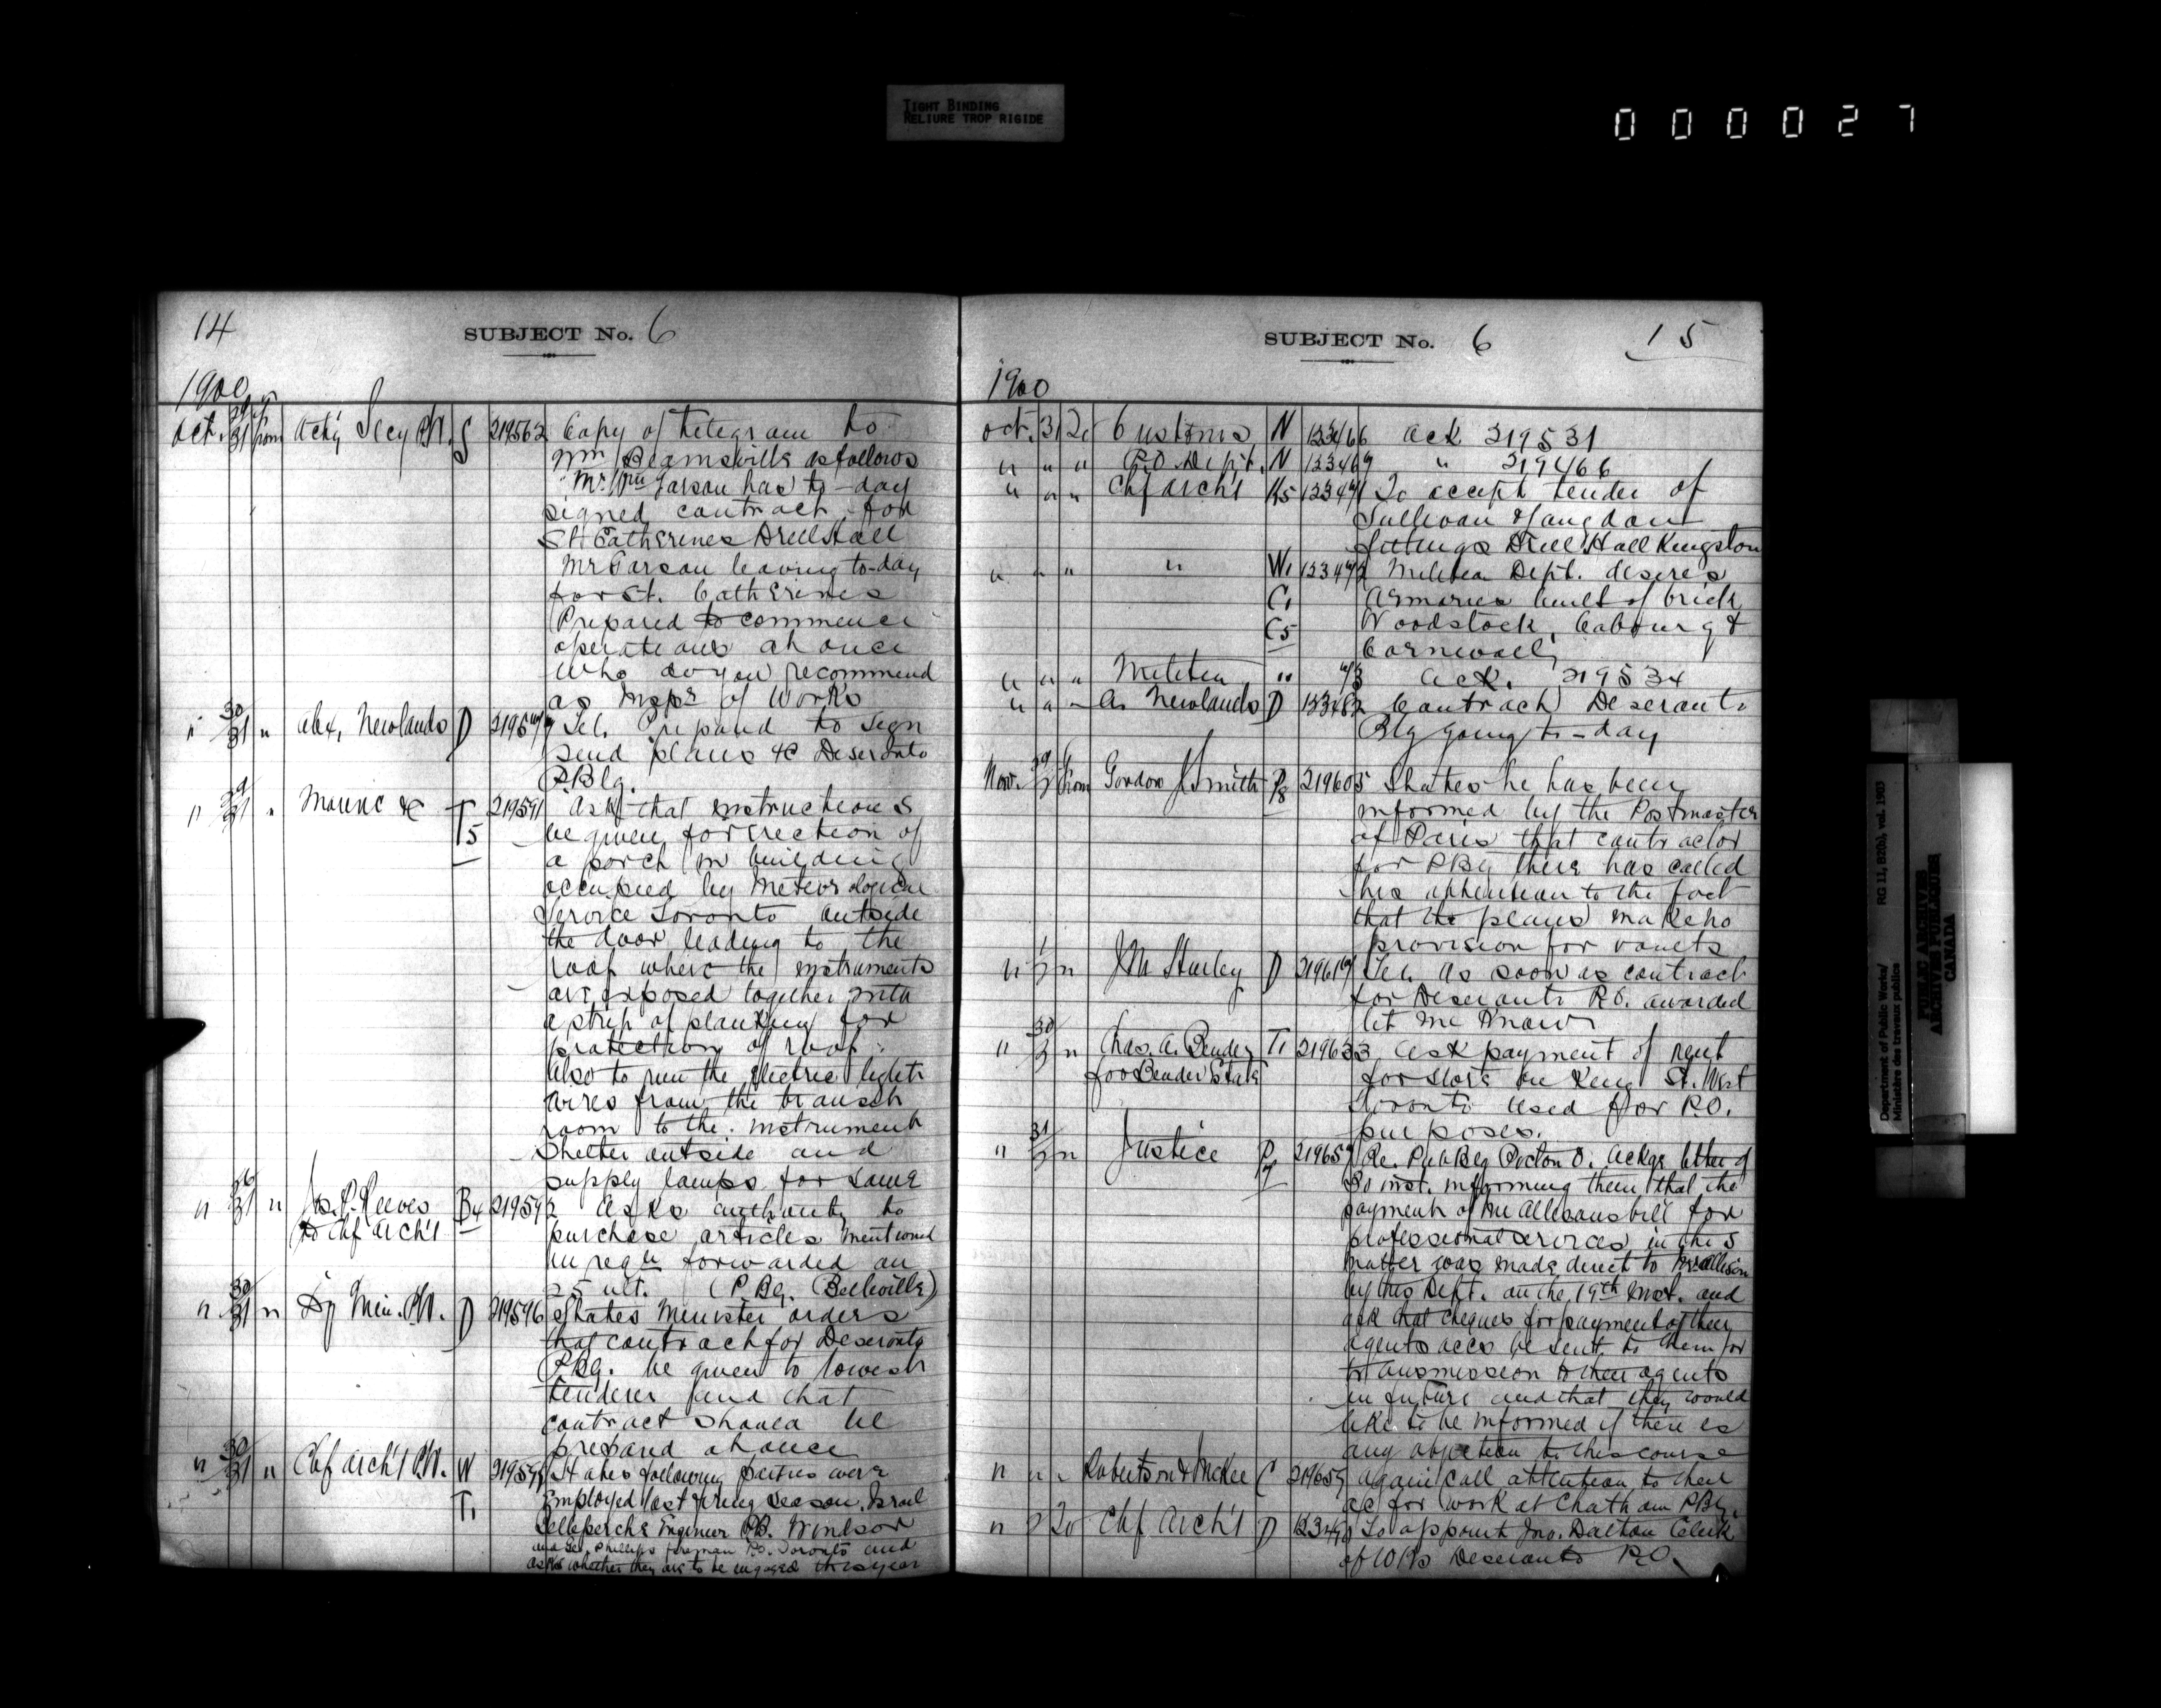 TIGHT BINDING
RELIURE TROP RIGIDE
000027
14
SUBJECT No. 6
1900
Oct. 31 from Actg Secy P.W. S 219562 Copy of telegram to
Wm Beamsville as follows
Mr. Wm has to-day
signed contract for
St Catherines Drill Hall
Mr leaving to-day
for St. Catherines
Prepared to commence
operations at once
Who do you recommend
as Inspr of Works
" 30/31 " Alex. Newlands D Tel. Prepared to sign
send plans &c Deseronto
P.Blg.
" 29/31 " Marine &c T5 219591 Ask that instructions
be given for erection of
a porch in building
occupied by Meteorological
Service Toronto outside
the door leading to the
roof where the instruments
are exposed together with
a strip of planking for
protection of roof.
Also to run the electric light
wires from the transit
room to the instrument
shelter outside and
supply lamps for same
" 26/31 " Js. P. Reeves B4 219592 Asks authority to
to Chf Arch't purchase articles mentioned
in reqn forwarded on
25 ult. (P Bg. Belleville)
" 30/31 " Dy Min. P.W. D 219596 States Minister orders
that contract for Deseronto
P.Bg. be given to lowest
tenderer and that
contract should be
prepared at once
" 30/31 " Chf Arch't P.W. W States following parties were
T1 Employed last firing season. Israel
Engineer P.B. Windsor
and Geo. Phillips fireman P.O. Toronto and
asks whether they are to be engaged this year
SUBJECT No. 6
15
1900
Oct. 31 To Customs N 123466 Ack 219531
" " " P.O. Dept. N " 219466
" " " Chf Arch't K5 To accept tender of
Sullivan & Langdon
fittings Drill Hall Kingston
" " " " W1 Militia Dept. desires
C1 Armories built of brick
C5 Woodstock, Cobourg &
Cornwall,
" " " Militia " Ack. 219534
" " " A. Newlands D Contract Deseronto
Blg going to-day
Nov. from Gordon J Smith P8 219605 States he has been
informed by the Postmaster
of Paris that contractor
for PBg there has called
his attention to the fact
that the plans make no
provision for vaults
" 1/2 " J M Hurley D Tel. As soon as contract
for Deseronto P.O. awarded
let me know
" 30/2 " Chas. A. Bender T1 219633 Ask payment of rent
for Bender Estate for store on King St. West
Toronto used for P.O.
purposes.
" 31/2 " Justice Re. Pub Bg Picton O. Ackgs letter of
30 inst. informing them that the
payment of Mr Allison's bill for
professional services in the
matter was made direct to Mr Allison
by this Dept. on the 19th inst. and
ask that cheques for payment of their
agents accs be sent to them for
transmission to their agents
in future and that they would
like to be informed if there is
any objection to this course
" " " Robertson & McKee C 219659 Again call attention to their
ac for work at Chatham PBg.
" 2 To Chf Arch't D To appoint Jno. Dalton Clerk
of W'ks Deseronto P.O.
Department of Public Works/
Ministère des travaux publics
RG 11, B2(b), vol. 1903
PUBLIC ARCHIVES
ARCHIVES PUBLIQUES
CANADA